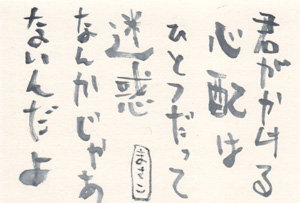 君がかける
心配は
ひとつだって
迷惑
なんかじゃあ
ないんだよ